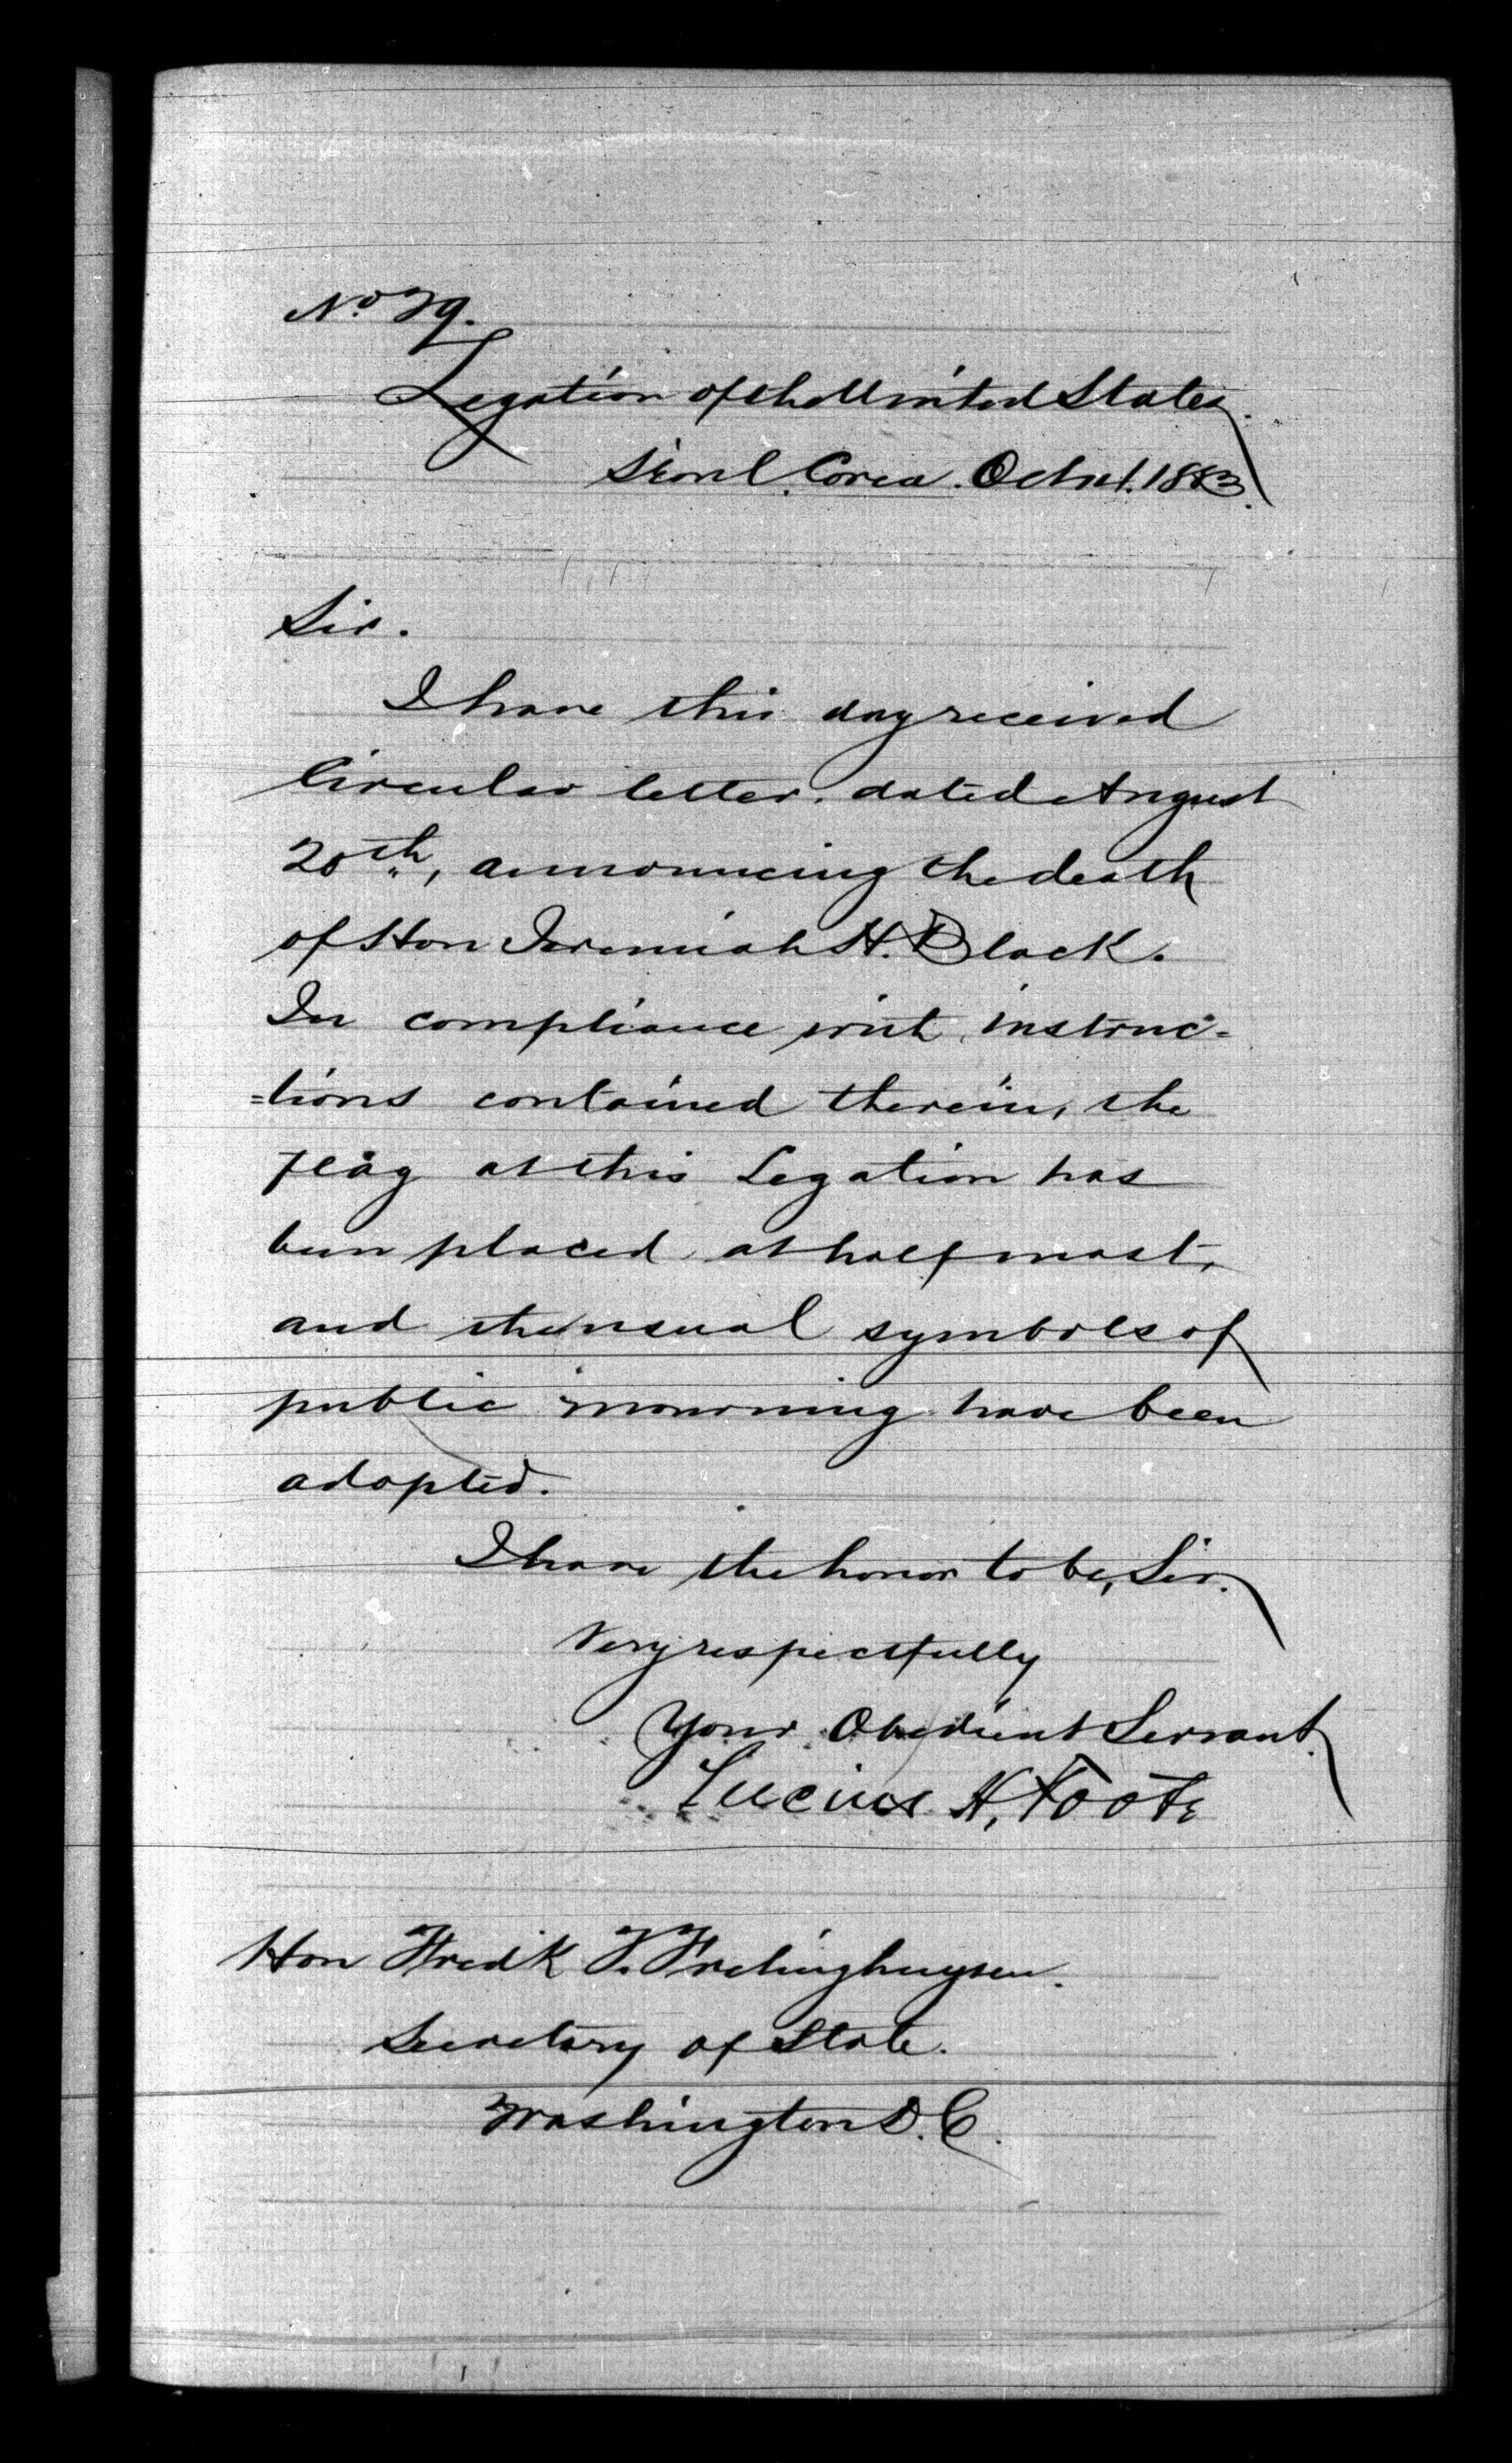 No 29.
Legation of the United States.
Séoul. Corea. Oct 1883.
Sir.
I have this day received
Circular letter, dated August
20th, announcing the death
of Hon Jeremiah H. Black.
In compliance wit instruc=
=tions contained therein, the
flag at this Legation has
been placed at half mast,
and the usual symbols of
public mourning have been
adopted.
I have the honor to be, Sir.
Very respectfully
Your Obedient Servant.
Lucius H. Foote
Hon Fredk T. Frelinghuysen.
Secretary of State.
Washington D.C.